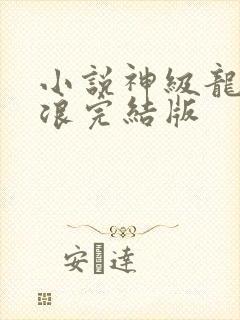 小說神級龍
浪完結版
安 達